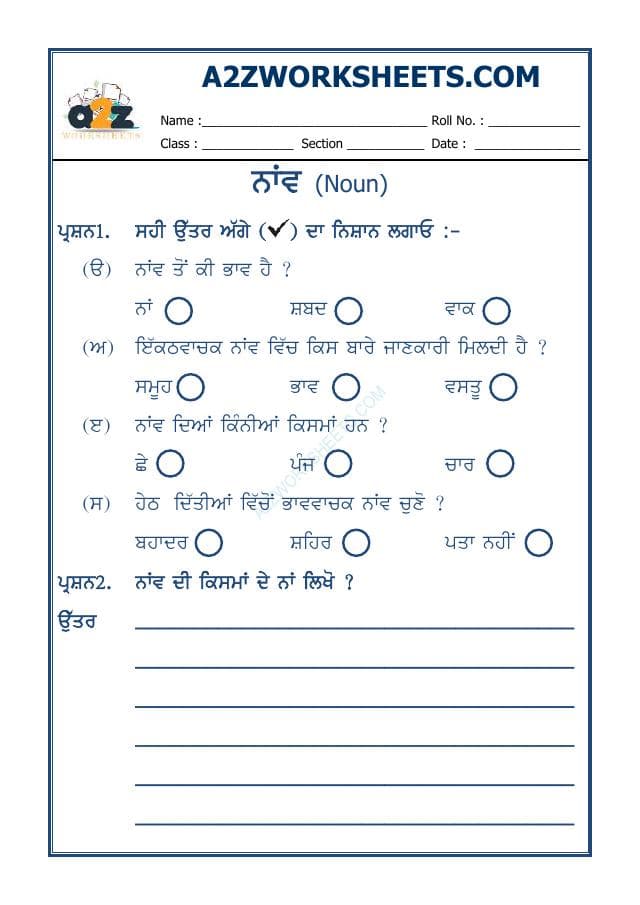 A2ZWORKSHEETS.COM
a2z
WORKSHEETS
Name :____________________________ Roll No. : ____________
Class : ____________ Section __________ Date : ______________
ਨਾਂਵ (Noun)
ਪ੍ਰਸ਼ਨ1. ਸਹੀ ਉੱਤਰ ਅੱਗੇ (✓) ਦਾ ਨਿਸ਼ਾਨ ਲਗਾਓ :-
(ੳ) ਨਾਂਵ ਤੋਂ ਕੀ ਭਾਵ ਹੈ ?
ਨਾਂ ਸ਼ਬਦ ਵਾਕ
(ਅ) ਇੱਕਠਵਾਚਕ ਨਾਂਵ ਵਿੱਚ ਕਿਸ ਬਾਰੇ ਜਾਣਕਾਰੀ ਮਿਲਦੀ ਹੈ ?
ਸਮੂਹ ਭਾਵ ਵਸਤੂ
(ੲ) ਨਾਂਵ ਦਿਆਂ ਕਿੰਨੀਆਂ ਕਿਸਮਾਂ ਹਨ ?
ਛੇ ਪੰਜ ਚਾਰ
(ਸ) ਹੇਠ ਦਿੱਤੀਆਂ ਵਿੱਚੋਂ ਭਾਵਵਾਚਕ ਨਾਂਵ ਚੁਣੋ ?
ਬਹਾਦਰ ਸ਼ਹਿਰ ਪਤਾ ਨਹੀਂ
ਪ੍ਰਸ਼ਨ2. ਨਾਂਵ ਦੀ ਕਿਸਮਾਂ ਦੇ ਨਾਂ ਲਿਖੋ ?
ਉੱਤਰ
A2ZWORKSHEETS.COM